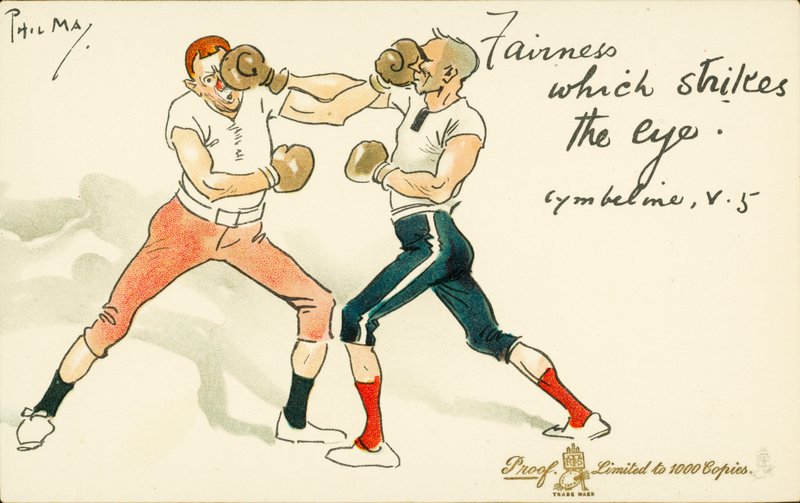 PHIL MAY
Fairness
which strikes
the eye.
Cymbeline, V. 5
Proof. Limited to 1000 Copies.
TRADE MARK